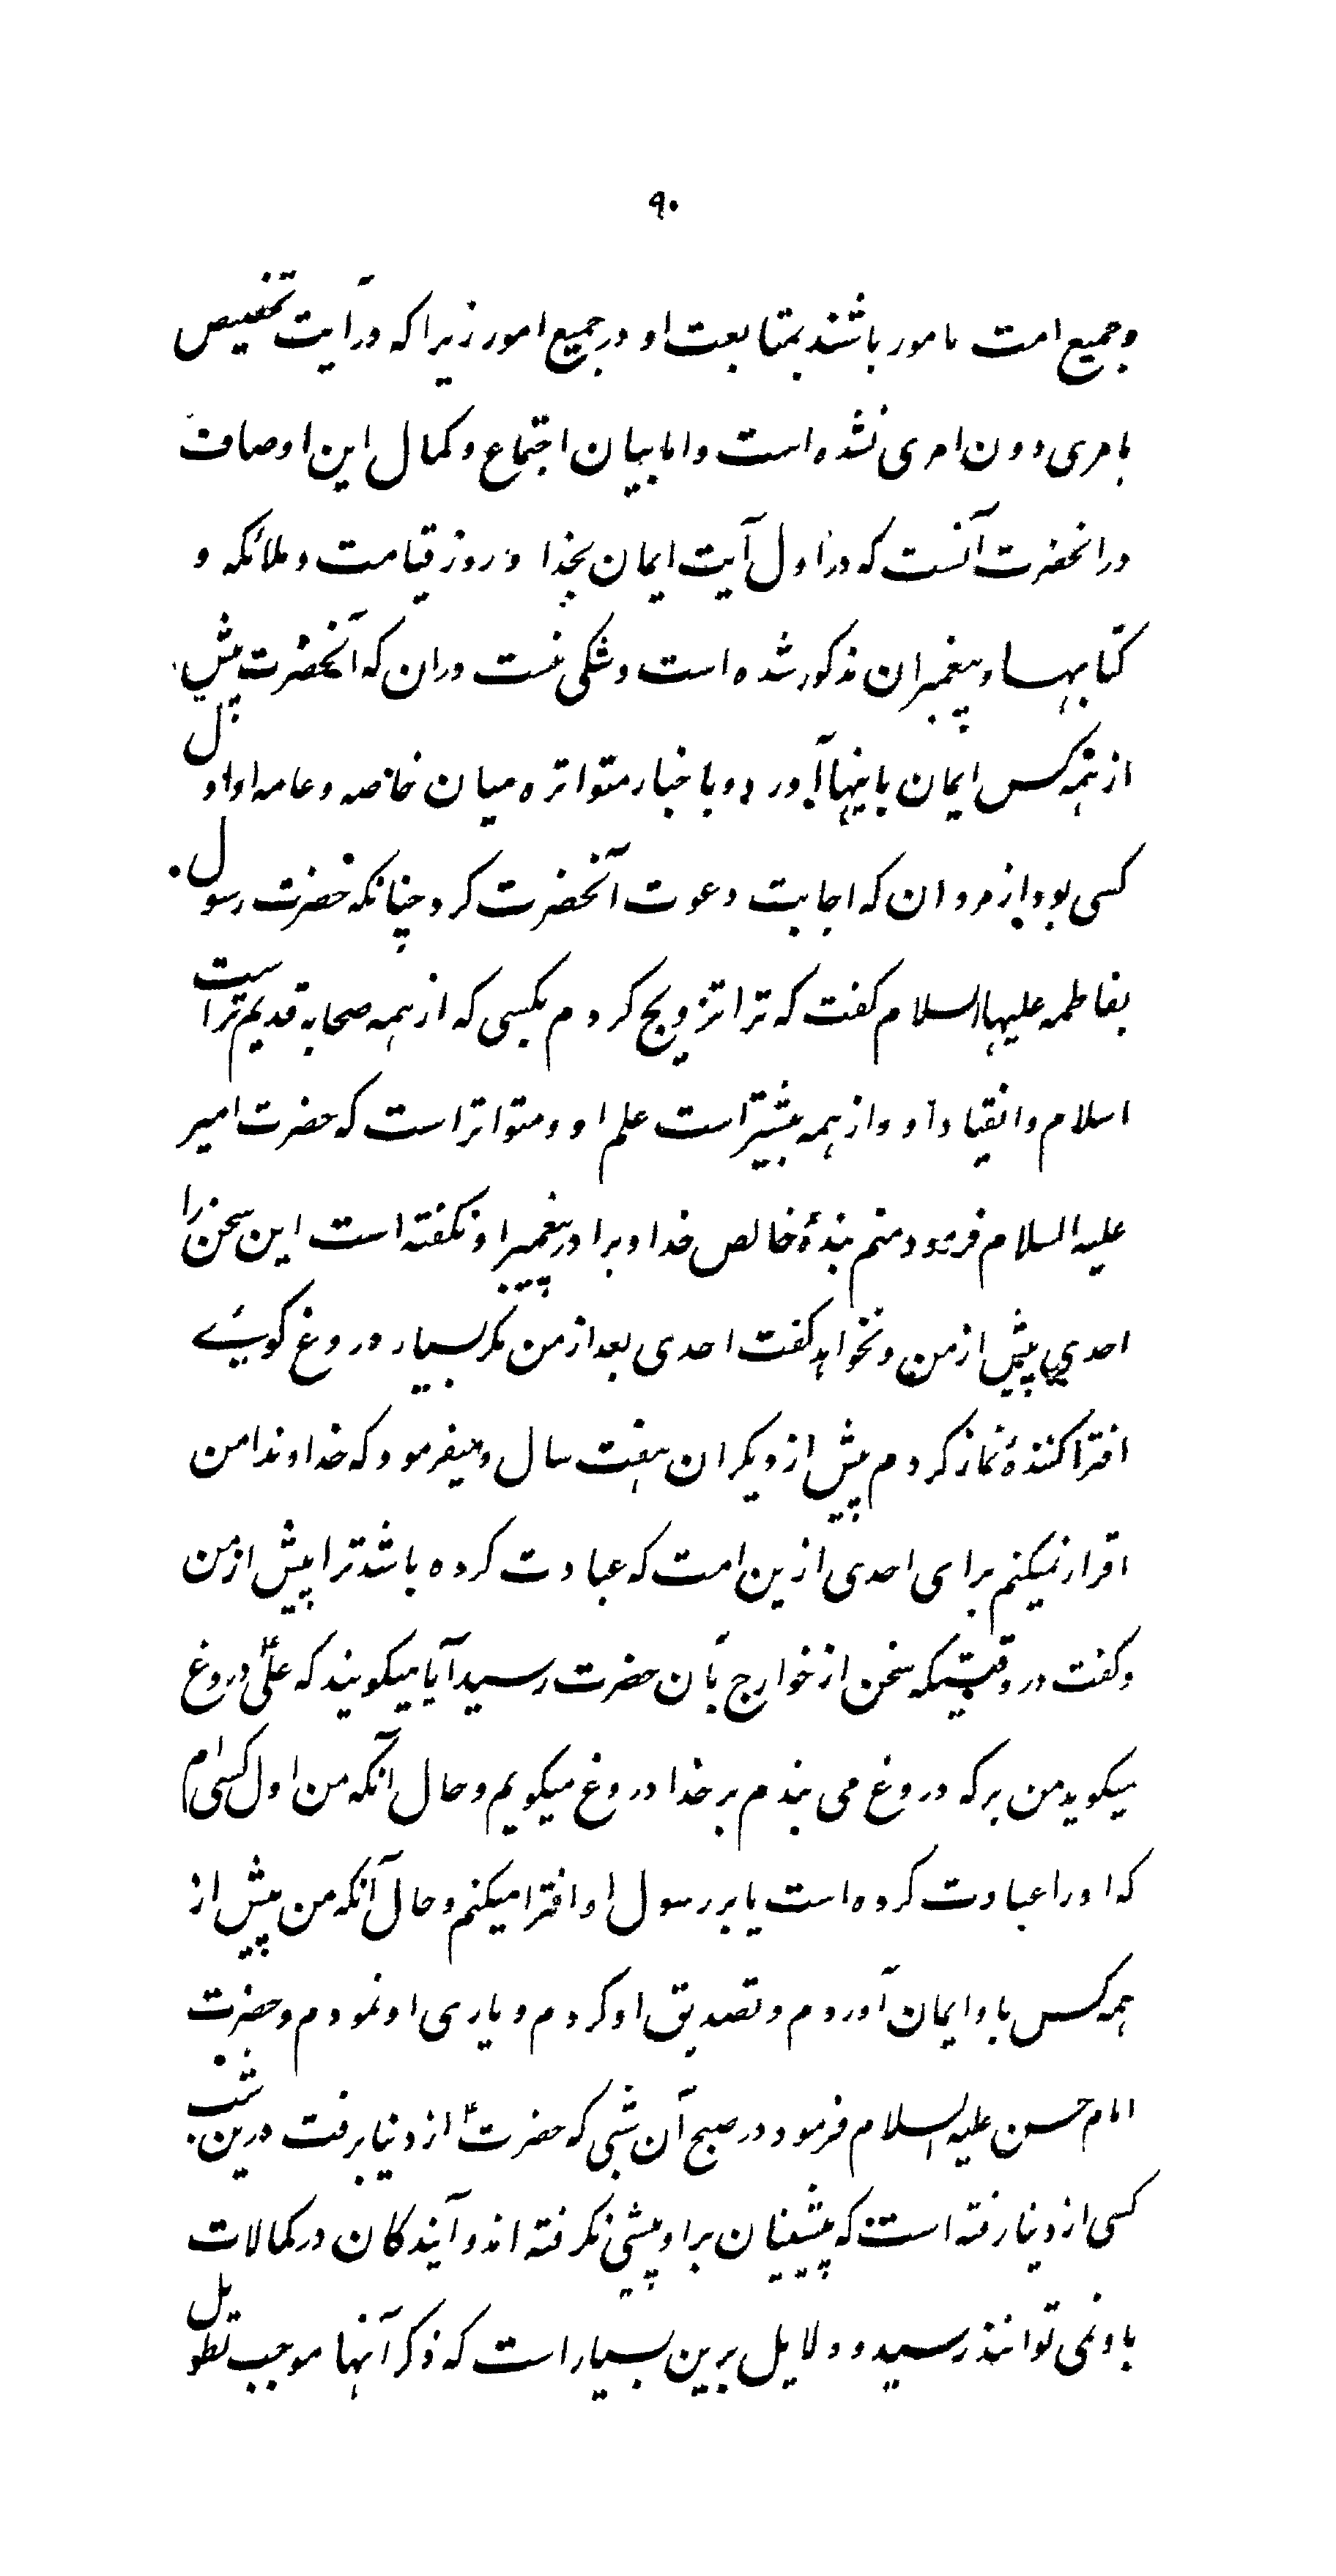 ۹۰
وجمیع امت مامور باشند بمتابعت او درجمیع امور زیرا که درآیت تخصیص
بامری دون امری نشده است واما بیان اجتماع وکمال این اوصاف
درانحضرت آنست که دراول آیت ایمان بخدا و روز قیامت وملائکه و
کتابهـا وپیغمبران مذکور شده است وشکی نیست دران که آنحضرت پیش
از همه کس ایمان باینها آورد وباخبار متواتره میان خاصه وعامه او اول
کسی بود از مردان که اجابت دعوت آنحضرت کرد چنانکه حضرت رسول
بفاطمه علیها السلام کفت که ترا تزویج کردم بکسی که از همه صحابه قدیم تراست
اسلام وانقیاد او واز همه بیشتراست علم او ومتواتراست که حضرت امیر
علیه السلام فرمود منم بندهٔ خالص خدا وبرادر پیغمبر او نکفته است این سخن را
احدی پیش از من ونخواهد کفت احدی بعد از من مکر بسیار دروغ کویئے
افترا کنندهٔ نماز کردم پیش از دیکران هفت سال ومیفرمود که خداوندا من
اقرار نمیکنم برای احدی ازین امت که عبادت کرده باشد ترا پیش از من
وکفت در وقتیکه سخن از خوارج بآن حضرت رسید آیا میکویند که علیؑ دروغ
میکوید من برکه دروغ می بندم بر خدا دروغ میکویم وحال آنکه من اول کسی ام
که اورا عبادت کرده است یا بر رسول او افترا میکنم وحال آنکه من پیش از
همه کس باو ایمان آوردم وتصدیق او کردم ویاری او نمودم وحضرت
امام حسن علیه السلام فرمود درصبح آن شبی که حضرتؑ از دنیا برفت درین شب
کسی از دنیا رفته است که پیشینیان براو پیشی نکرفته اند وآیندکان در کمالات
باو نمی توانند رسید و دلایل برین بسیار است که ذکر آنها موجب تطویل